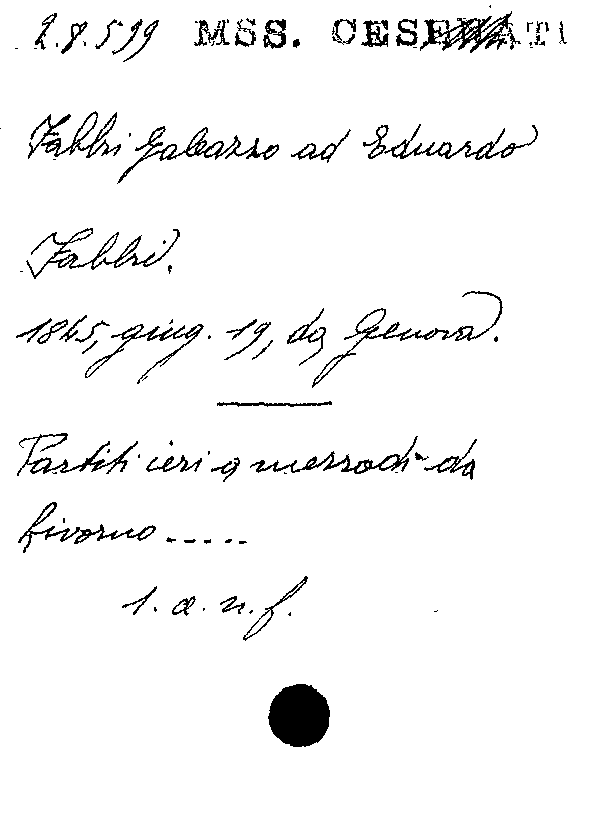 2.8.599 MSS. CESENATI
Fabbri Galeazzo ad Eduardo
Fabbri.
1845, giug. 19, da Genova.
Partiti ieri a mezzodì da
Livorno .....
1. a. n. f.